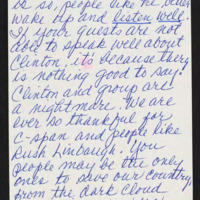 is so, people like he never
wake up and listen well.
If your guests are not
able to speak well about
Clinton. it's because there
is nothing good to say.
Clinton and group are
a nightmare. We are
ever so thankful for
C-span and people like
Rush Limbaugh. You
people may be the only
ones to save our country
from the dark cloud